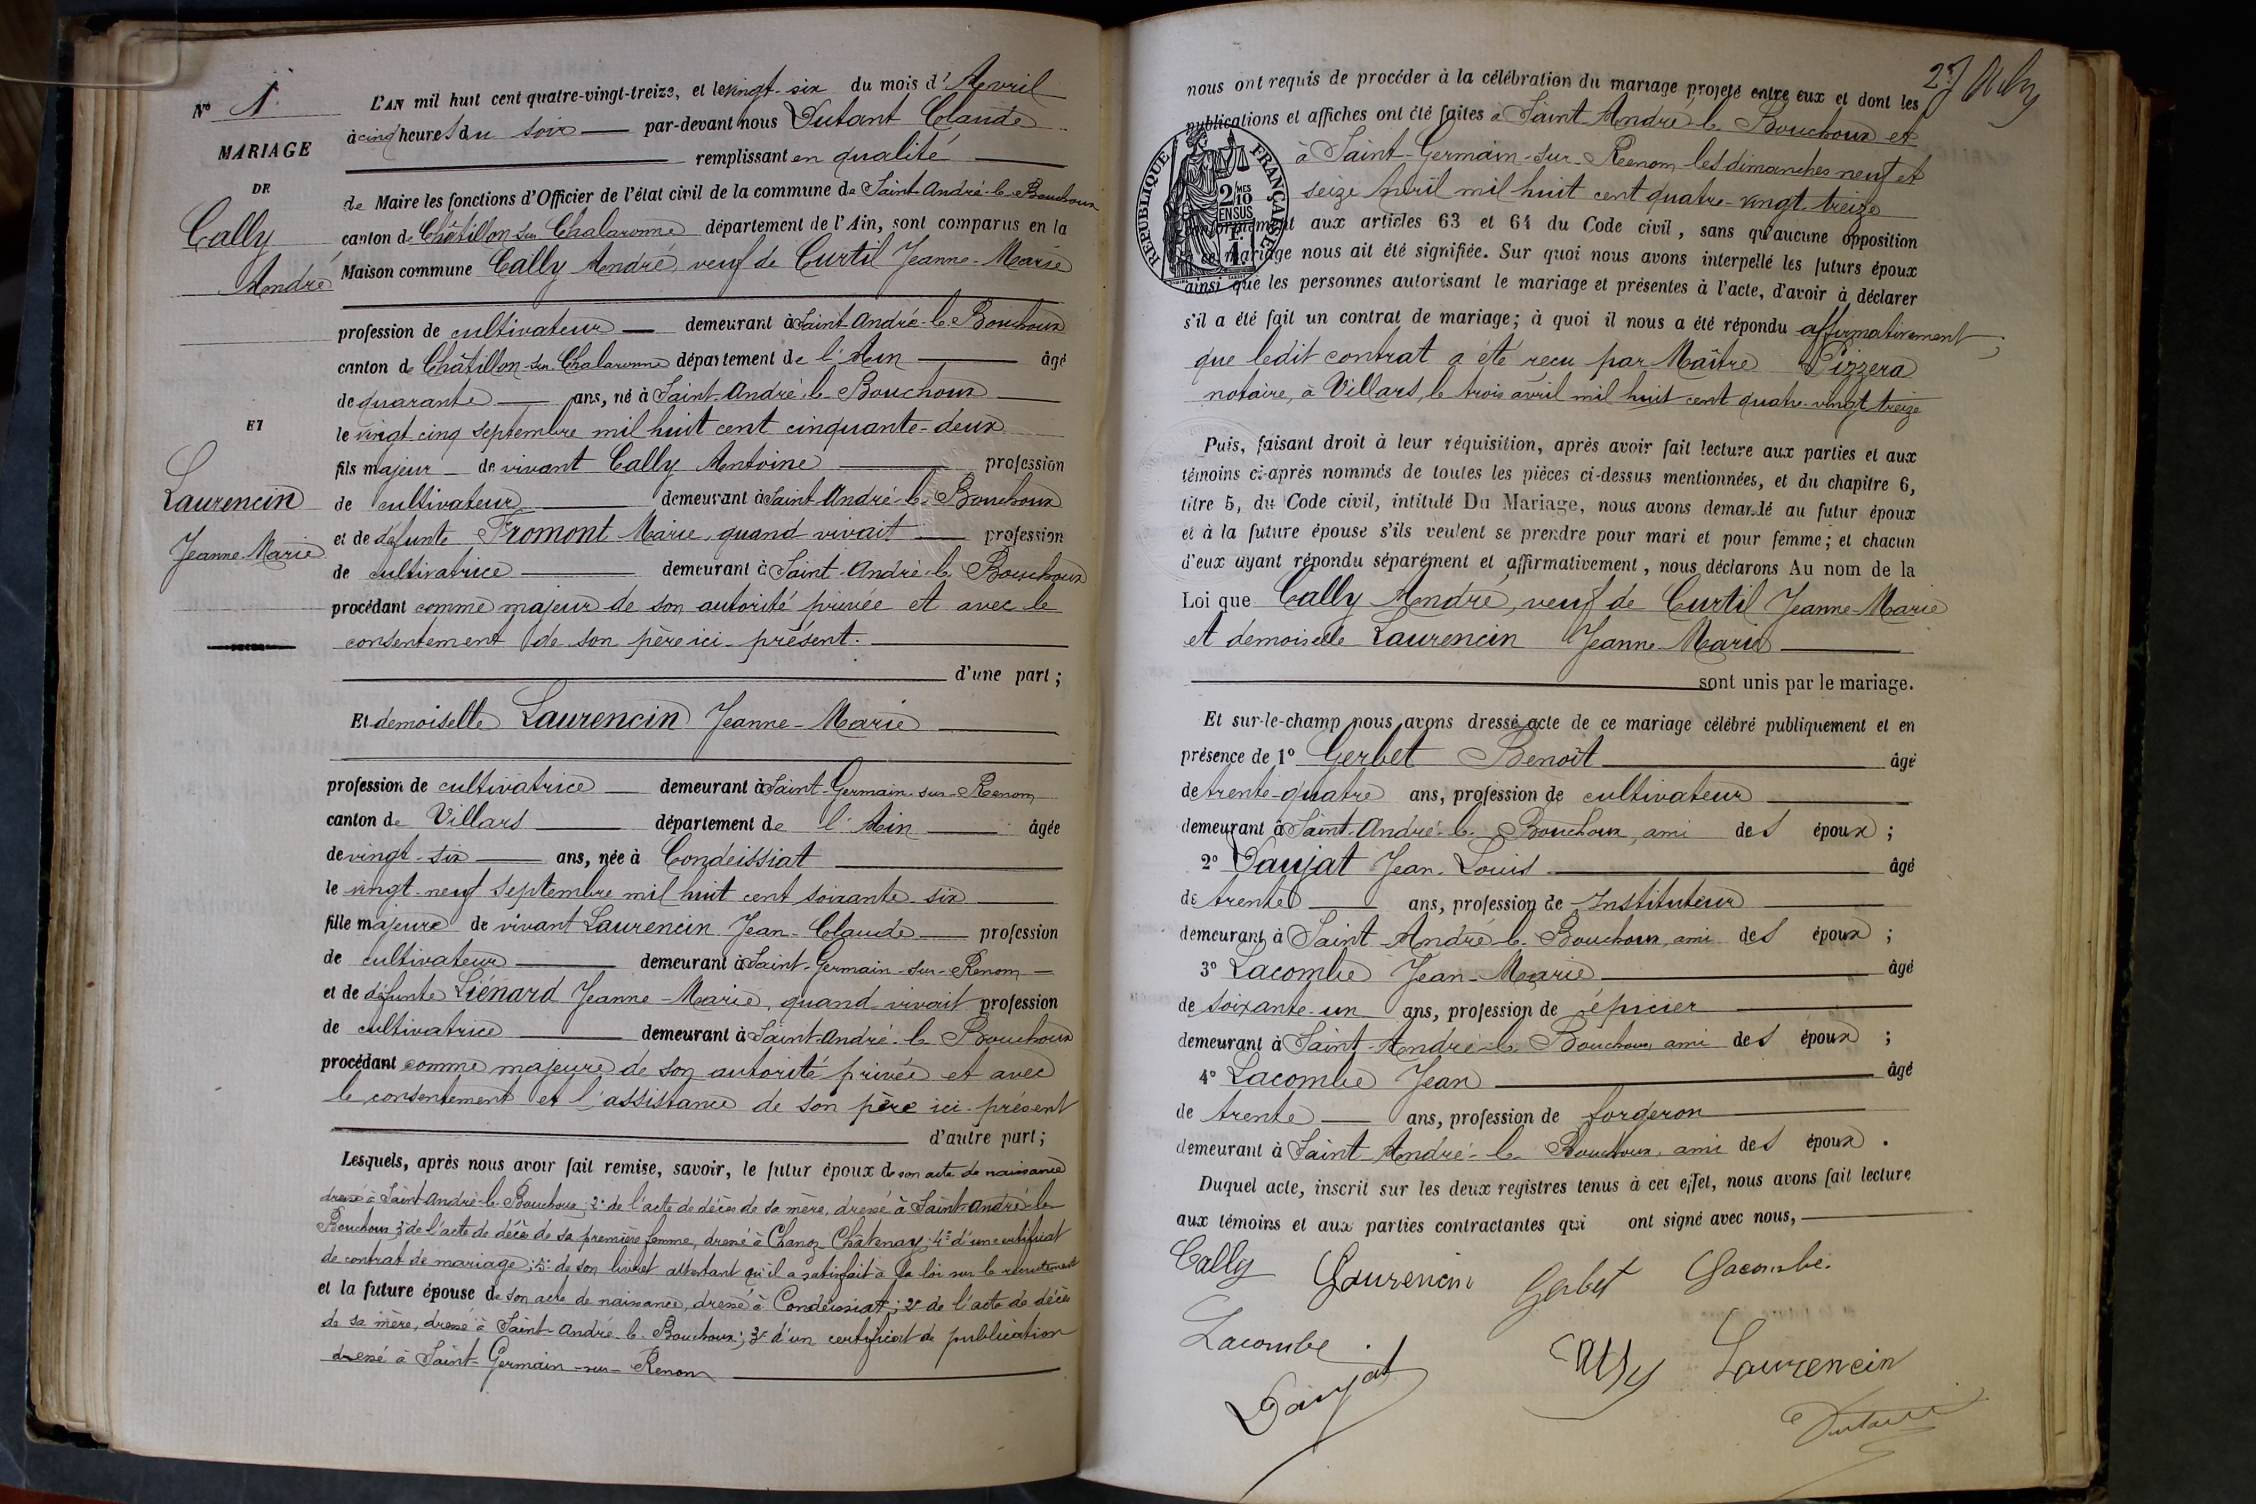 Nº 1.
MARIAGE
DE
Cally
André
ET
Laurencin
Jeanne-Marie
L'AN mil huit cent quatre-vingt-treize, et le vingt-six du mois d'Avril
à cinq heures du soir par-devant nous Dutant Claude
remplissant en qualité
de Maire les fonctions d'Officier de l'état civil de la commune de Saint-André-le-Bouchoux
canton de Châtillon-sur-Chalaronne département de l'Ain, sont comparus en la
Maison commune Cally André, veuf de Curtil Jeanne-Marie
profession de cultivateur demeurant à Saint-André-le-Bouchoux
canton de Châtillon-sur-Chalaronne département de l'Ain âgé
de quarante ans, né à Saint-André-le-Bouchoux
le vingt-cinq septembre mil huit cent cinquante-deux
fils majeur de vivant Cally Antoine profession
de cultivateur demeurant à Saint-André-le-Bouchoux
et de défunte Fromont Marie, quand vivait profession
de cultivatrice demeurant à Saint-André-le-Bouchoux
procédant comme majeur de son autorité privée et avec le
consentement de son père ici présent.
d'une part;
Et demoiselle Laurencin Jeanne-Marie
profession de cultivatrice demeurant à Saint-Germain-sur-Renom
canton de Villars département de l'Ain âgée
de vingt-six ans, née à Condeissiat
le vingt-neuf septembre mil huit cent soixante-six
fille majeure de vivant Laurencin Jean-Claude profession
de cultivateur demeurant à Saint-Germain-sur-Renom
et de défunte Liénard Jeanne-Marie, quand vivait profession
de cultivatrice demeurant à Saint-André-le-Bouchoux
procédant comme majeure de son autorité privée et avec
le consentement et l'assistance de son père ici présent
d'autre part;
Lesquels, après nous avoir fait remise, savoir, le futur époux de son acte de naissance
dressé à Saint-André-le-Bouchoux; 2º de l'acte de décès de sa mère, dressé à Saint-André-le-
Bouchoux 3º de l'acte de décès de sa première femme, dressé à Chanoz-Châtenay; 4º d'un certificat
de contrat de mariage; 5º de son livret attestant qu'il a satisfait à la loi sur le recrutement
et la future épouse de son acte de naissance, dressé à Condeissiat; 2º de l'acte de décès
de sa mère, dressé à Saint-André-le-Bouchoux; 3º d'un certificat de publication
dressé à Saint-Germain-sur-Renom
nous ont requis de procéder à la célébration du mariage projeté entre eux et dont les
publications et affiches ont été faites à Saint-André-le-Bouchoux et
à Saint-Germain-sur-Renom les dimanches neuf et
seize Avril mil huit cent quatre-vingt-treize
conformément aux articles 63 et 64 du Code civil, sans qu'aucune opposition
à ce mariage nous ait été signifiée. Sur quoi nous avons interpellé les futurs époux
ainsi que les personnes autorisant le mariage et présentes à l'acte, d'avoir à déclarer
s'il a été fait un contrat de mariage; à quoi il nous a été répondu affirmativement;
que ledit contrat a été reçu par Maître Pizzera
notaire, à Villars, le trois avril mil huit cent quatre-vingt treize
RÉPUBLIQUE FRANÇAISE
2/10 MES
EN SUS
Puis, faisant droit à leur réquisition, après avoir fait lecture aux parties et aux
témoins ci-après nommés de toutes les pièces ci-dessus mentionnées, et du chapitre 6,
titre 5, du Code civil, intitulé Du Mariage, nous avons demandé au futur époux
et à la future épouse s'ils veulent se prendre pour mari et pour femme; et chacun
d'eux ayant répondu séparément et affirmativement, nous déclarons Au nom de la
Loi que Cally André, veuf de Curtil Jeanne-Marie
et demoiselle Laurencin Jeanne-Marie
sont unis par le mariage.
Et sur-le-champ nous avons dressé acte de ce mariage célébré publiquement et en
présence de 1º Gerbet Benoît âgé
de trente-quatre ans, profession de cultivateur
demeurant à Saint-André-le-Bouchoux, ami des époux;
2º Daujat Jean-Louis âgé
de trente ans, profession de Instituteur
demeurant à Saint-André-le-Bouchoux, ami des époux;
3º Lacombe Jean-Marie âgé
de soixante-un ans, profession de épicier
demeurant à Saint-André-le-Bouchoux, ami des époux;
4º Lacombe Jean âgé
de trente ans, profession de forgeron
demeurant à Saint-André-le-Bouchoux, ami des époux.
Duquel acte, inscrit sur les deux registres tenus à cet effet, nous avons fait lecture
aux témoins et aux parties contractantes qui ont signé avec nous,
Cally Laurencin Gerbet Lacombe.
Lacombe Cally Laurencin
Daujat Dutant